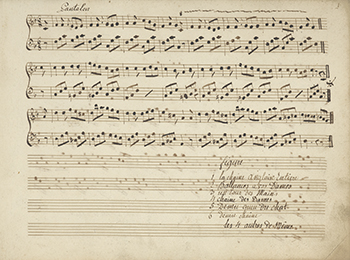 Pantalon
Figure
1 la chaine Anglaise Entière
2 Ballancés à vos Dames
3 un tour des Mains
4 chaine des Dames
5 Demie queue du chat
6 demie chaine
les 4 autres de même.